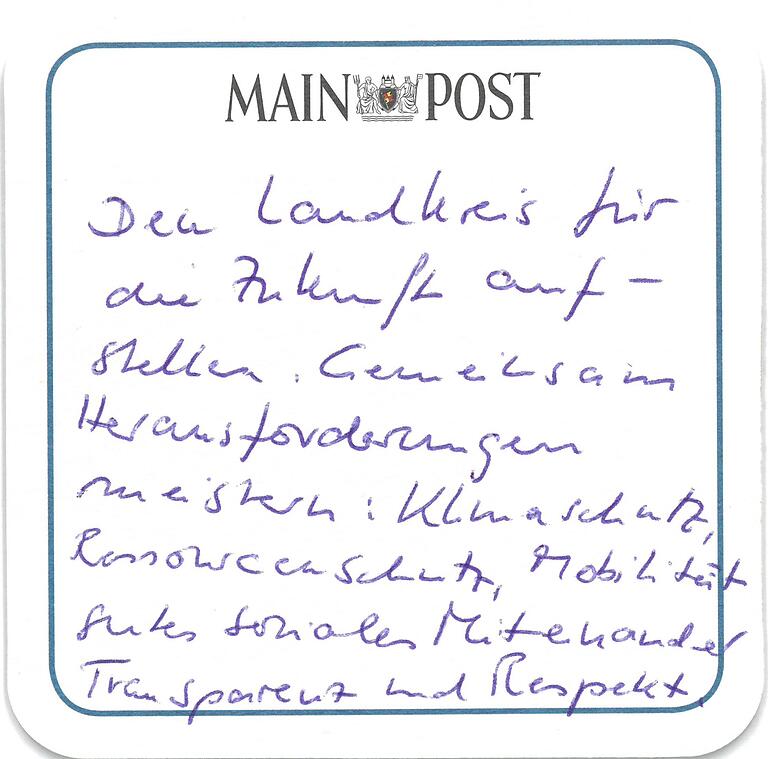 MAIN POST
Den Landkreis für
die Zukunft auf-
stellen. Gemeinsam
Herausforderungen
meistern: Klimaschutz,
Ressourcenschutz, Mobilität
gutes soziales Miteinander
Transparenz und Respekt.